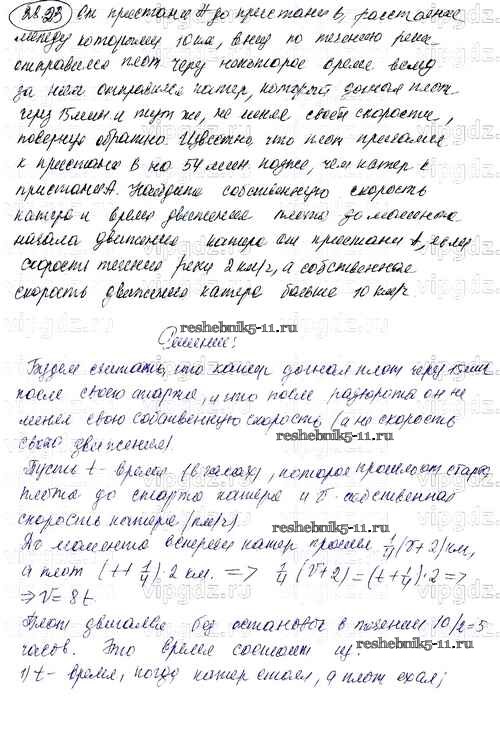 28.23 От пристани А до пристани В, расстояние
между которыми 10 км, вниз по течению реки
отправился плот через некоторое время вслед
за ним отправился катер, который догнал плот
через 15 мин и тут же, не меняя своей скорости,
повернул обратно. Известно что плот приплыл
к пристани В на 54 мин. позже, чем катер к
пристани А. Найдите собственную скорость
катера и время движения плота до момента
начала движения катера от пристани А, если
скорость течения реки 2 км/ч, а собственная
скорость движения катера больше 10 км/ч.
reshebnik5-11.ru
Решение:
Будем считать, что катер догнал плот через 15 мин
после своего старта, и что после разворота он не
менял свою собственную скорость (а не скорость
reshebnik5-11.ru
своего движения).
Пусть t - время (в часах), которое прошло от старта
плота до старта катера и v - собственная
скорость катера (км/ч)
reshebnik5-11.ru
До момента встречи катер прошел 1/4 (v+2) км,
а плот (t + 1/4)·2 км. => 1/4 (v+2) = (t+1/4)·2 =>
=> v = 8t.
Плот двигался без остановок в течении 10/2=5
часов. Это время состоит из:
reshebnik5-11.ru
1) t - время, когда катер стоял, а плот ехал;